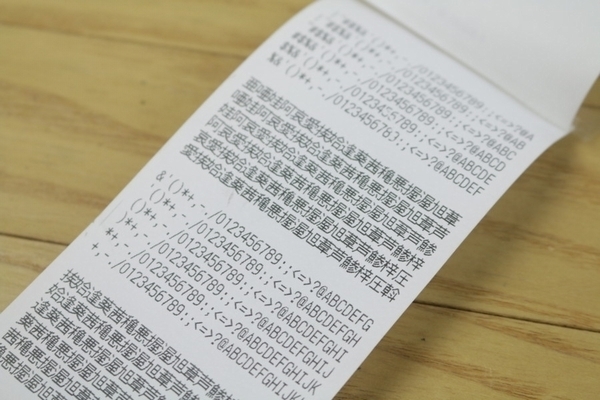 !"#$%&'()*+,-./0123456789:;<=>?@A
!"#$%&'()*+,-./0123456789:;<=>?@AB
"#$%&'()*+,-./0123456789:;<=>?@ABC
#$%&'()*+,-./0123456789:;<=>?@ABCD
$%&'()*+,-./0123456789:;<=>?@ABCDE
%&'()*+,-./0123456789:;<=>?@ABCDEF
亜唖娃阿哀愛挨姶逢葵茜穐悪握渥旭葦
唖娃阿哀愛挨姶逢葵茜穐悪握渥旭葦芦
娃阿哀愛挨姶逢葵茜穐悪握渥旭葦芦鯵
阿哀愛挨姶逢葵茜穐悪握渥旭葦芦鯵梓
哀愛挨姶逢葵茜穐悪握渥旭葦芦鯵梓圧
愛挨姶逢葵茜穐悪握渥旭葦芦鯵梓圧斡
&'()*+,-./0123456789:;<=>?@ABCDEFG
'()*+,-./0123456789:;<=>?@ABCDEFGH
()*+,-./0123456789:;<=>?@ABCDEFGHI
)*+,-./0123456789:;<=>?@ABCDEFGHIJ
*+,-./0123456789:;<=>?@ABCDEFGHIJK
+,-./0123456789:;<=>?@ABCDEFGHIJKL
挨姶逢葵茜穐悪握渥旭葦芦鯵梓圧斡
姶逢葵茜穐悪握渥旭葦芦鯵梓圧
逢葵茜穐悪握渥旭葦芦鯵梓
葵茜穐悪握渥旭葦芦鯵
茜穐悪握渥旭葦芦